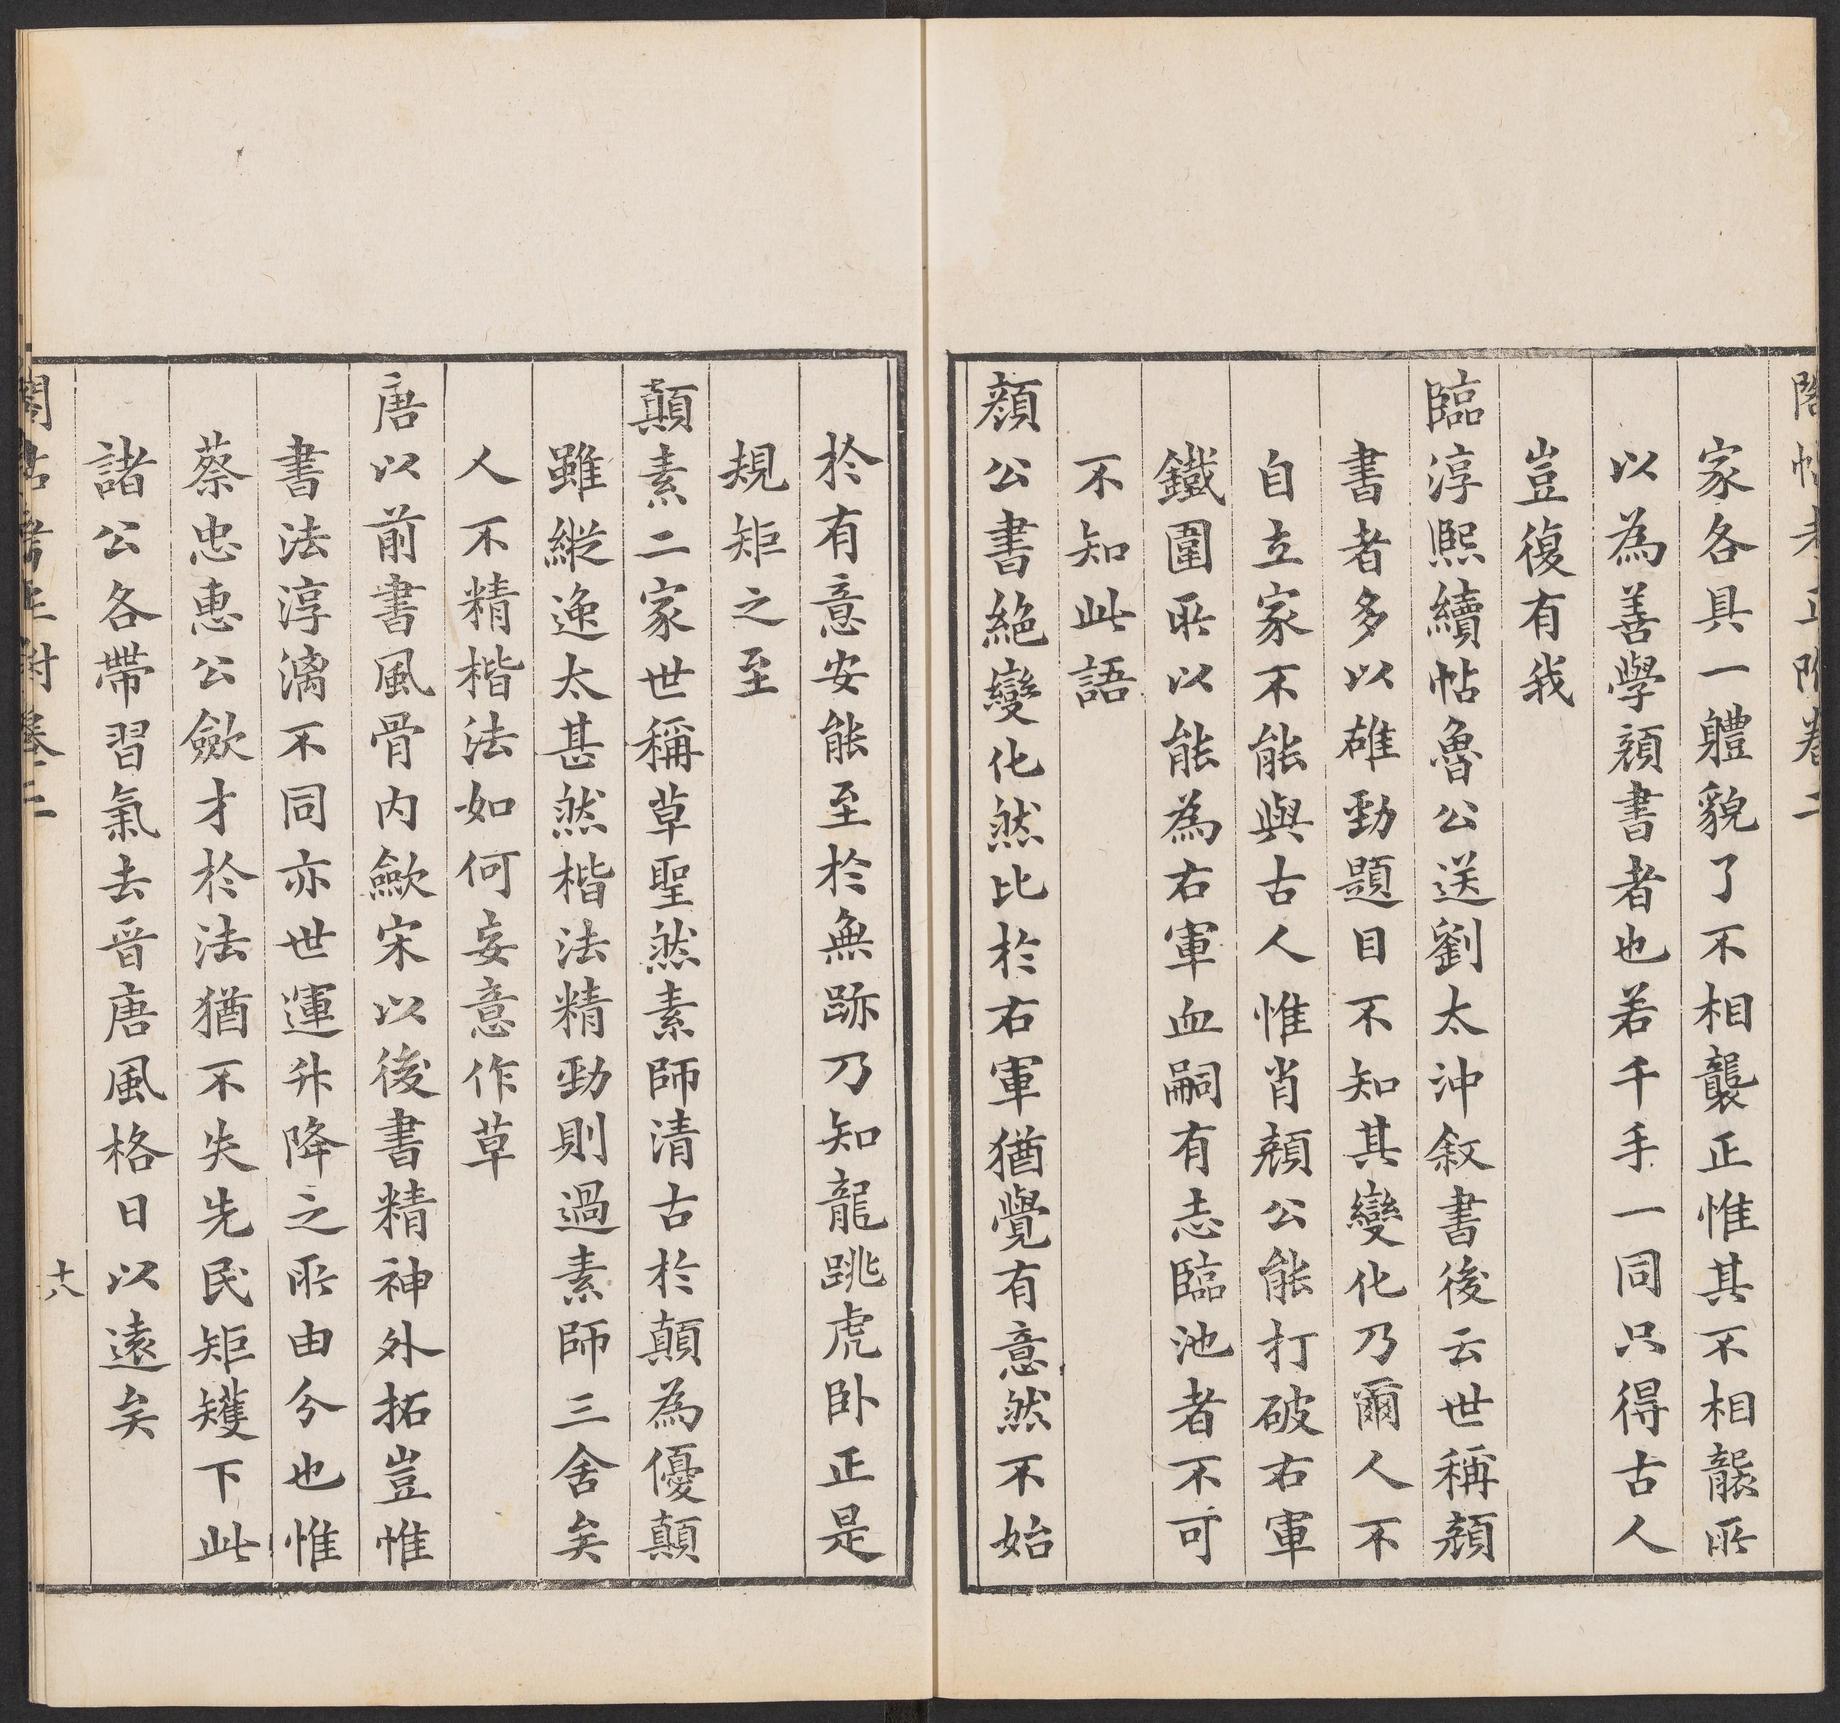 家各具一軆貌了不相襲正惟其不相襲所
以為善學顔書者也若千手一同只得古人
豈復有我
臨淳熙續帖魯公送劉太沖叙書後云世稱顔
書者多以雄勁題目不知其變化乃爾人不
自立家不能與古人惟肖顔公能打破右軍
鐵圍所以能為右軍血嗣有志臨池者不可
不知此語
顔公書絶變化然比於右軍猶覺有意然不始
於有意安能至於無跡乃知龍跳虎卧正是
規矩之至
顛素二家世稱草聖然素師清古於顛為優顛
雖縱逸太甚然楷法精勁則過素師三舍矣
人不精楷法如何妄意作草
唐以前書風骨内斂宋以後書精神外拓豈惟
書法淳漓不同亦世運升降之所由分也惟
蔡忠惠公斂才於法猶不失先民矩矱下此
諸公各帶習氣去晉唐風格日以遠矣
十八